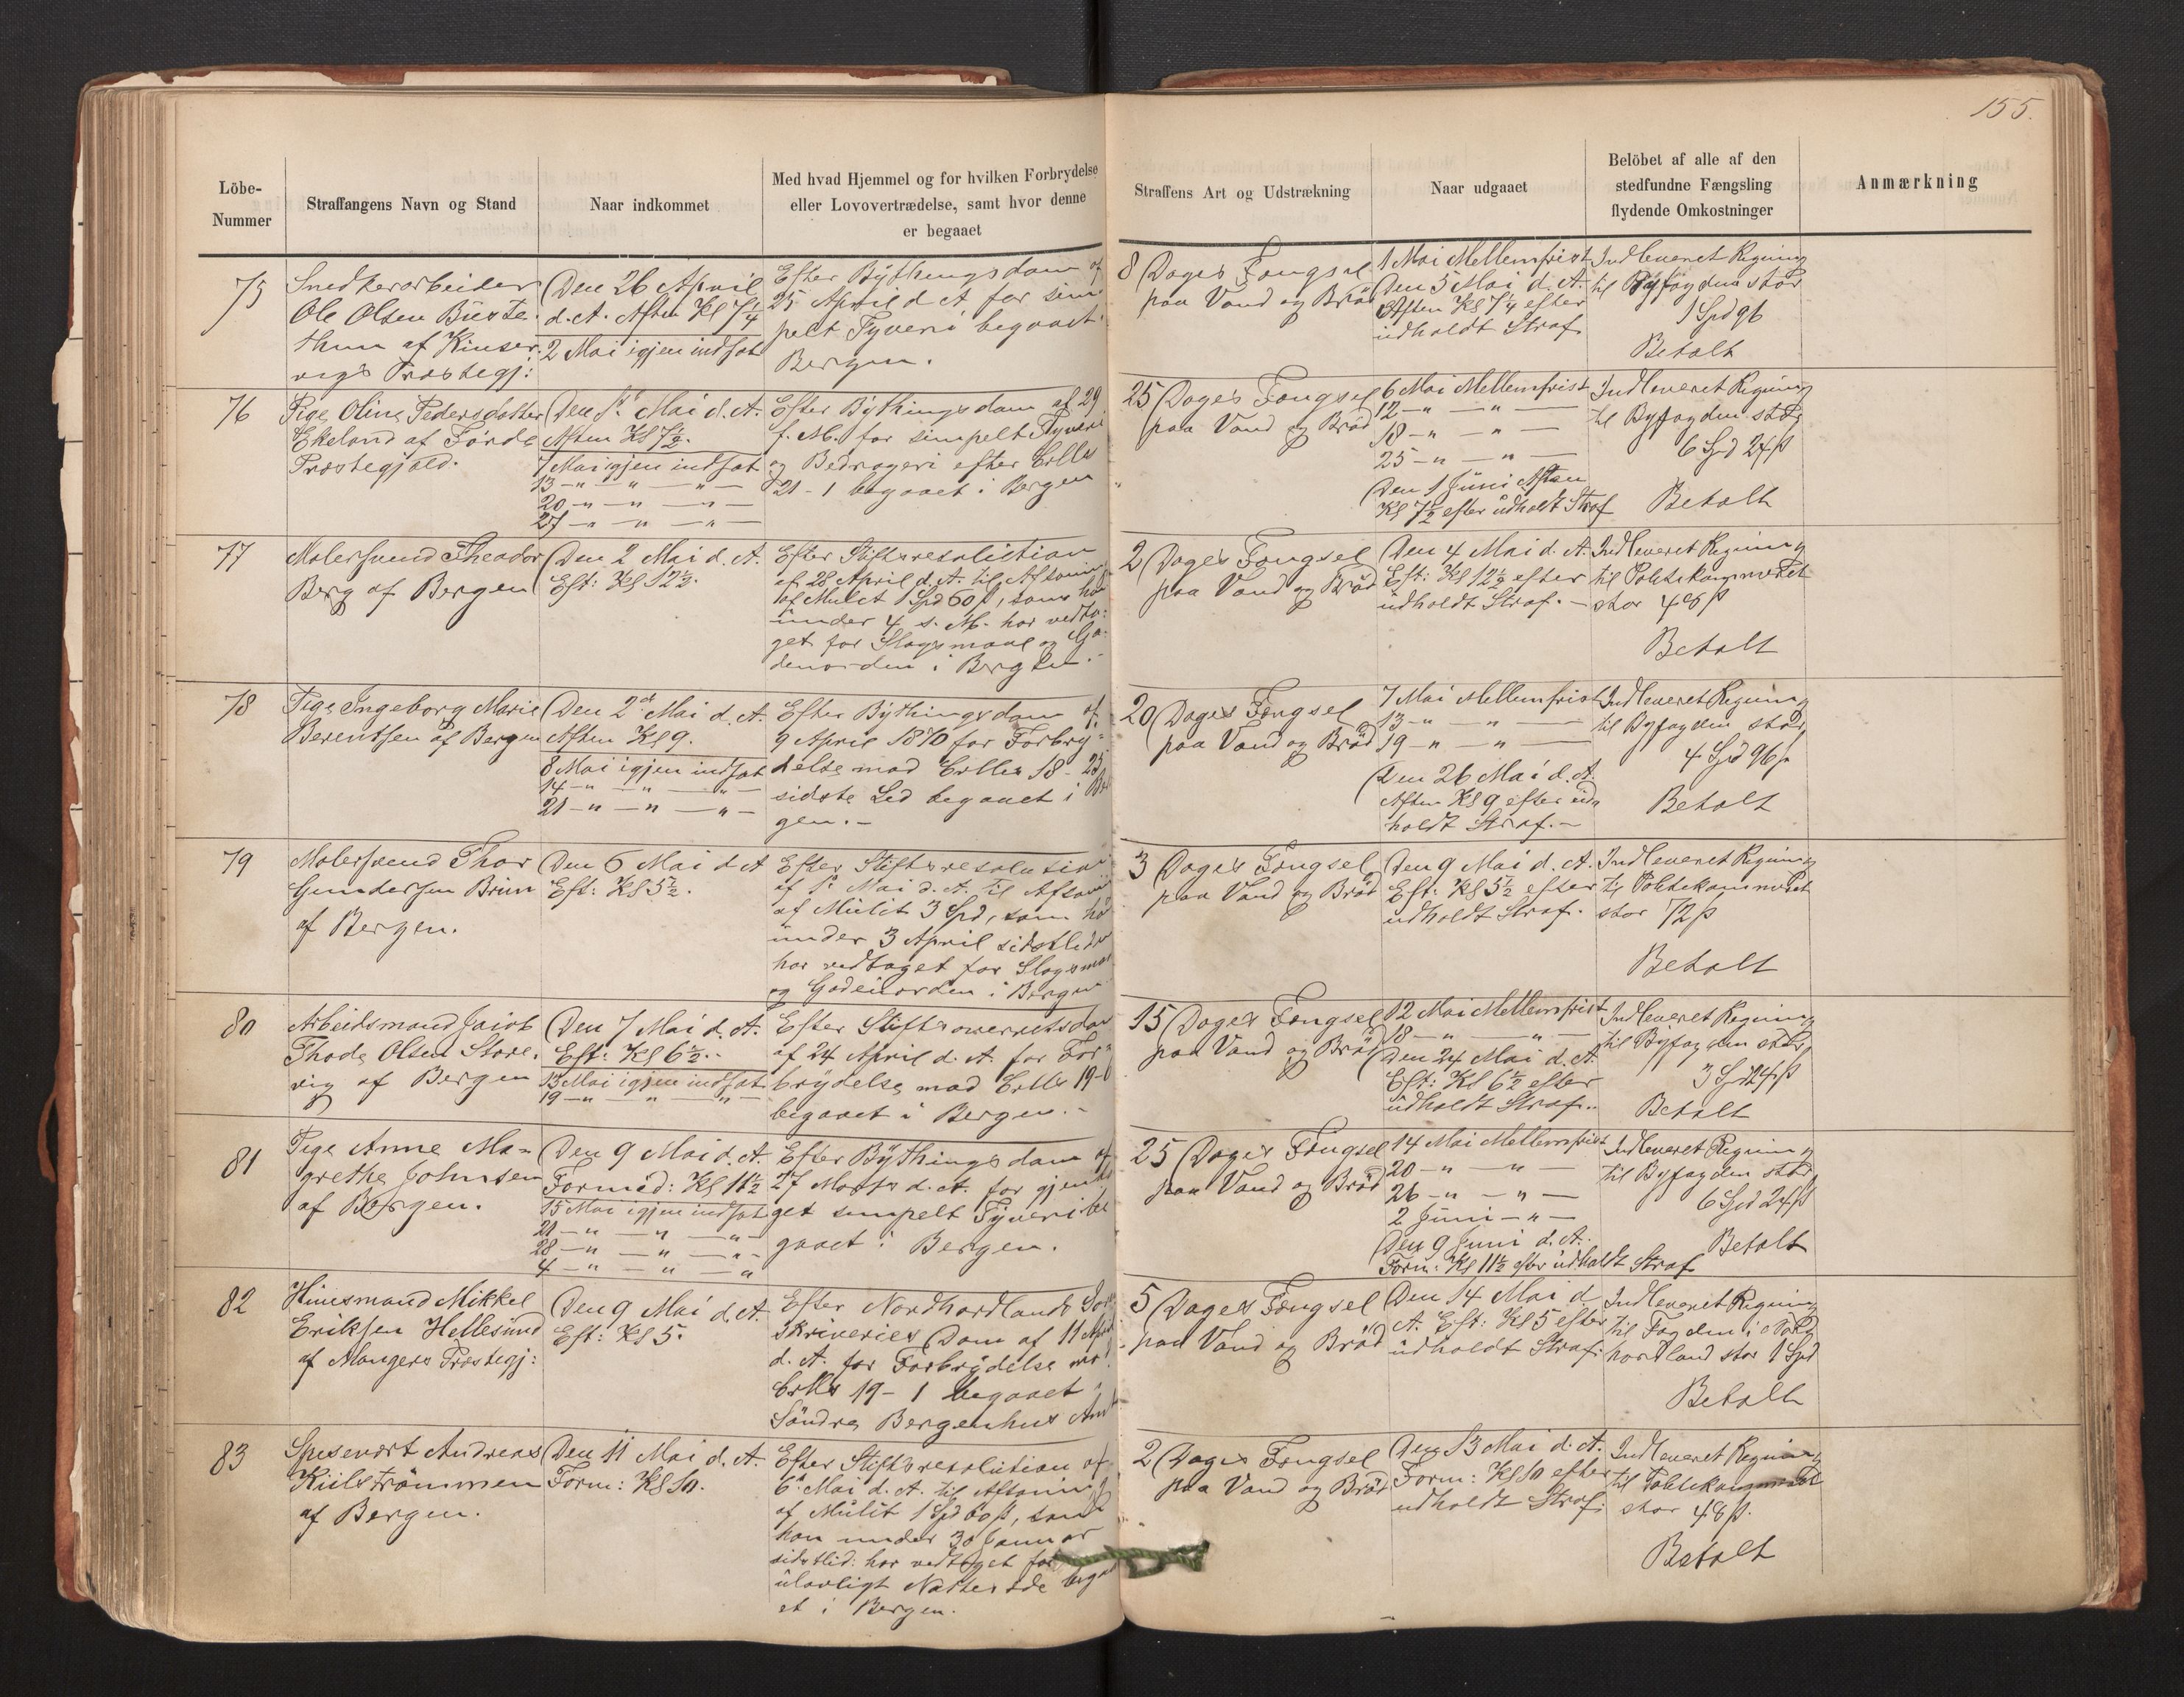 155.
Löbe-
Nummer
Straffangens Navn og Stand
Naar indkommet
Med hvad Hjemmel og for hvilken Forbrydelse
eller Lovovertrædelse, samt hvor denne
er begaaet
Straffens Art og Udstrækning
Naar udgaaet
Belöbet af alle af den
stedfundne Fængsling
flydende Omkostninger
Anmærkning
75
Snedkerarbeider
Ole Olsen Büste-
thun af Kinser-
vigs Præstegj:
Den 26 April
d. A. Aften Kl 7 1/4
2 Mai igjen indsat
Efter Bythingsdom af
25 April d A for sim
pelt Tyveri begaaet
Bergen.
8 Dages Fængsel
paa Vand og Bröd
1 Mai Mellemfrist
Den 5 Mai d. A.
Aften Kl 7 1/4 efter
udholdt Straf
Indleveret Regning
til Byfogden stor
1 Spd 96
Betalt
76
Pige Oline Pedersdatter
Ekeland af Förde
Præstegjæld.
Den 1ste Mai d. A.
Aften Kl 7 1/2.
7 Mai igjen indsat
13 — " — " — " —
20 — " — " — " —
27 — " — " — " —
Efter Bythingsdom af 29
f. M. for simpelt Tyveri
og Bedrageri efter Crlls
21 - 1 begaaet i Bergen
25 Dages Fængsel
paa Vand og Bröd
6 Mai Mellemfrist
12 — " — " —
18 — " — " —
25 — " — " —
Den 1 Juni Aften
Kl 7 1/2 efter udholdt Straf
Indleveret Regning
til Byfogden stor
6 Spd 24 ß
Betalt
77
Malersvend Theodor
Berg af Bergen
Den 2 Mai d. A.
Eft: Kl 12 1/2.
Efter Stiftsresolution
af 28 April d. A. til Afsoning
af Mulct 1 Spd 60 ß, som han
under 4 s. M. har vedta-
get for Slagsmaal og Ga-
deuorden i Bergen.-
2 Dages Fængsel
paa Vand og Bröd
Den 4 Mai d. A.
Eft: Kl 12 1/2 efter
udholdt Straf. —
Indleveret Regning
til Politikammeret
stor 48 ß
Betalt
78
Pige Ingeborg Marie
Berentsen af Bergen
Den 2den Mai d. A.
Aften Kl 9.
8 Mai igjen indsat
14 — " — " — " —
21 — " — " — " —
Efter Bythingsdom af
9 April 1870 for Forbry-
delse mod Crlls 18 - 23
sidste Led begaaet i Ber
gen.-
20 Dages Fængsel
paa Vand og Bröd
7 Mai Mellemfrist
13 — " — " —
19 — " — " —
Den 26 Mai d. A.
Aften Kl 9 efter ud-
holdt Straf.—
Indleveret Regning
til Byfogden stor
4 Spd 96 ß
Betalt
79
Malersvend Thor
Gundersen Brun
af Bergen.
Den 6 Mai d A
Eft: Kl 5 1/2.
Efter Stiftsresolution
af 1ste Mai d. A. til Afsoning
af Mulct 3 Spd, som han
under 3 April sidstleden
har vedtaget for Slagsmaal
og Gadeuorden i Bergen
3 Dages Fængsel
paa Vand og Bröd
Den 9 Mai d. A.
Eft: Kl 5 1/2 efter
udholdt Straf.
Indleveret Regning
til Politikammeret
stor 72 ß
Betalt
80
Arbeidsmand Jacob
Thode Olsen Store-
vig af Bergen
Den 7 Mai d. A.
Eft: Kl 6 1/2.-
13 Mai igjen indsat
19 — " — " — " —
Efter Stiftsoverretsdom
af 24 April d. A. for For-
brydelse mod Crlls 19-
begaaet i Bergen.-
15 Dages Fængsel
paa Vand og Bröd
12 Mai Mellemfrist
18 — " — " —
Den 24 Mai d. A.
Eft: Kl 6 1/2 efter
udholdt Straf..
Indleveret Regning
til Byfogden stor
3 Spd 24 ß
Betalt
81
Pige Anne Ma-
grethe Johnsen
af Bergen.
Den 9 Mai d. A.
Formid: Kl 11 1/2
15 Mai igjen indsat
21 — " — " — " —
28 — " — " — " —
4 — " — " — "
Efter Bythingsdom af
27 Marts d. A. for gjenta
get simpelt Tyveri be
gaaet i Bergen.
25 Dages Fængsel
paa Vand og Bröd
14 Mai Mellemfrist
20 — " — " —
26 — " — " —
2 Juni — " —
Den 9 Juni d. A.
Form: Kl 11 1/2 efter udholdt Straf
Indleveret Regning
til Byfogden stor
6 Spd 24 ß
Betalt
82
Huusmand Mikkel
Eriksen Hellesund
af Mangers Præstegj:
Den 9 Mai d. A.
Eft: Kl 5.
Efter Nordhordlands Sor
skriveries Dom af 11 April
d. A. for Forbrydelse mod
Crlls 19 - 1 begaaet i
Söndre Bergenhus Amt
5 Dages Fængsel
paa Vand og Bröd
Den 14 Mai d
A. Eft: Kl 5 efter
udholdt Straf:
Indleveret Regning
til Fogden i Nord
hordland stor 1 Spd
Betalt
83
Spisevært Andreas
Kiilströmmen
af Bergen.
Den 11 Mai d. A.
Form: Kl 10.
Efter Stiftsresolution af
6 Mai d. A. til Afsoning
af Mulct 1 Spd 60 ß, som
han under 30 Januar
sidstlid: har vedtaget for
ulovligt Nattesæde begaa
et i Bergen.
2 Dages Fængsel
paa Vand og Bröd
Den 13 Mai d. A.
Form: Kl 10 efter
udholdt Straf:
Indleveret Regning
til Politikammeret
stor 48 ß.
Betalt